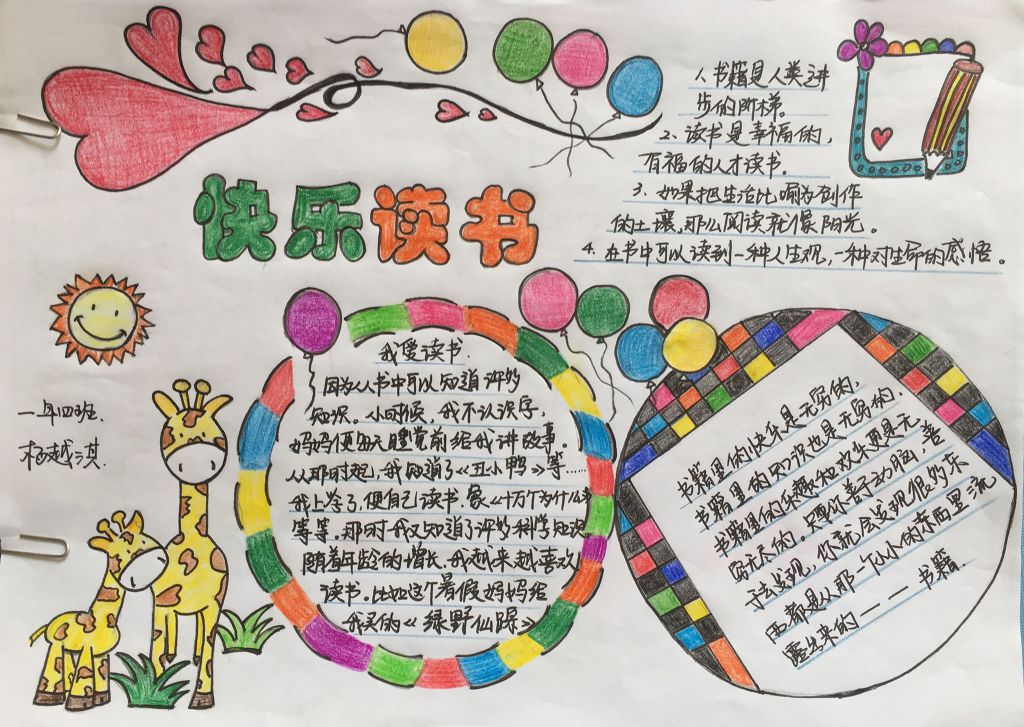 快乐读书
1、书籍是人类进
步的阶梯。
2、读书是幸福的，
有福的人才读书。
3、如果把生活比喻为创作
的土壤，那么阅读就像阳光。
4、在书中可以读到一种人生观，一种对生命的感悟。
一年四班
越淇
我爱读书
因为从书中可以知道许多
知识。小时候，我不认识字，
妈妈便每天睡觉前给我讲故事。
从那时起，我知道了《丑小鸭》等……
我上学了，便自己读书象《十万个为什么》
等等。那时我又知道了许多科学知识
随着年龄的增长，我越来越喜欢
读书。比如这个暑假妈妈给
我买的《绿野仙踪》
书籍里的快乐是无穷的，
书籍里的知识也是无穷的，
书籍里的乐趣和欢乐更是无
穷无尽的。只要你善于动脑，善
于去发现，你就会发现很多东
西都是从那一个小小的东西里流
露出来的———书籍